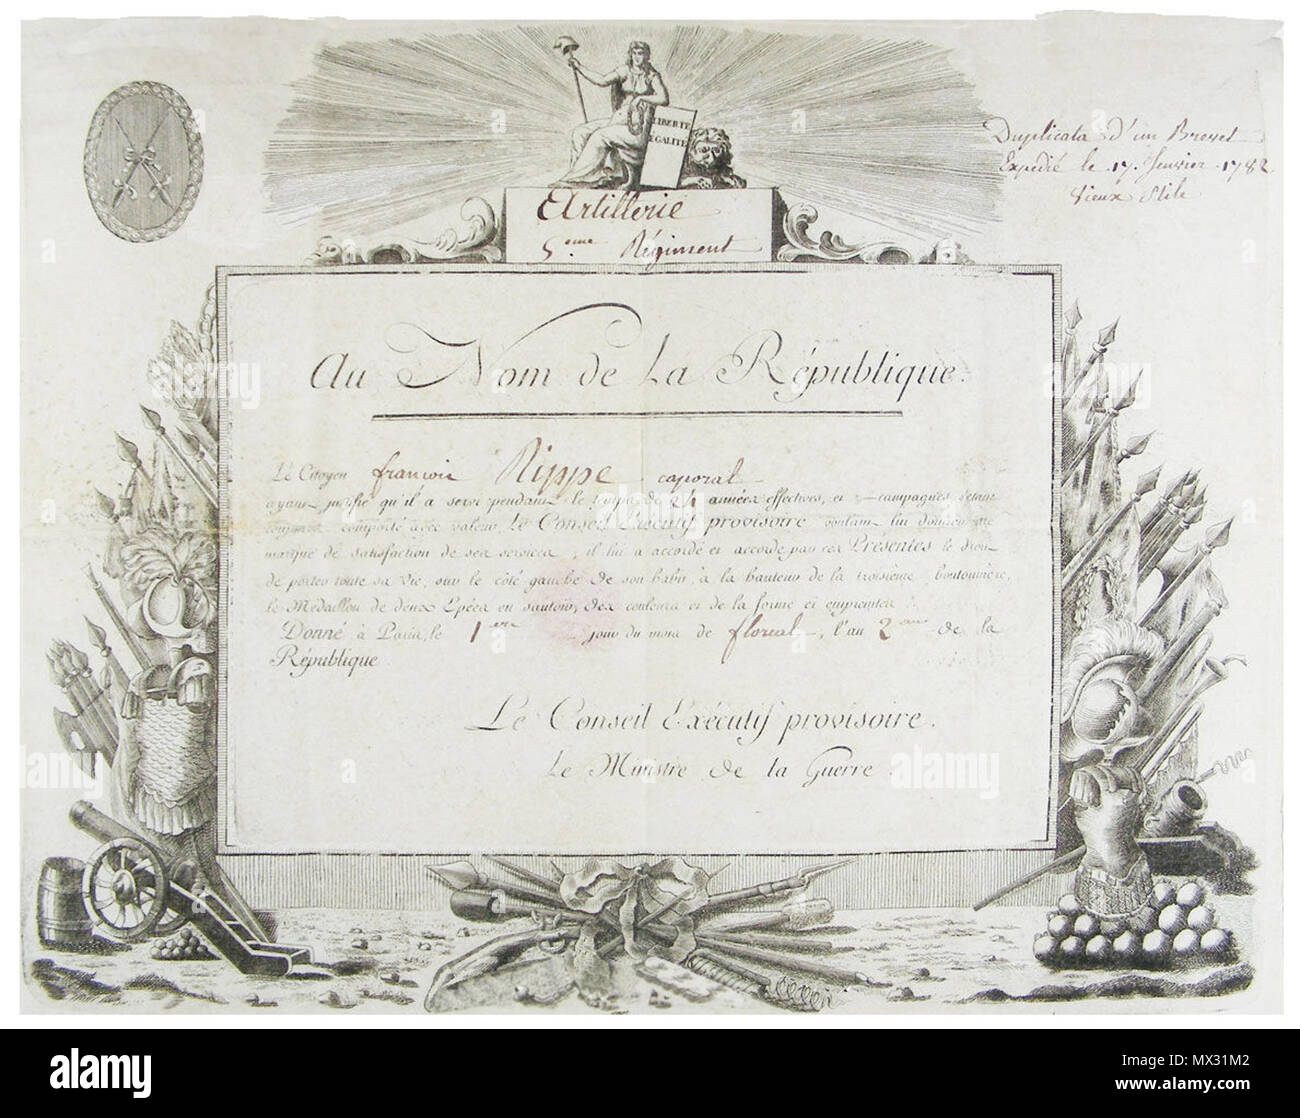 Duplicata d'un Brevet
Expédié le 17. Janvier 1782
Vieux Stile
LIBERTÉ
EGALITÉ
Artillerie
5eme Régiment
Au Nom de La République.
Le Citoyen françois Rippe caporal
ayant justifié qu'il a servi pendant le temps de 24 années effectives, et campagnes, s'étant
comporté avec valeur. Le Conseil Exécutif provisoire voulant lui donner une
marque de satisfaction de ses services, il lui a accordé et accorde par ces Présentes le droit
de porter toute sa vie, sur le côté gauche de son habit, à la hauteur de la troisième boutonnière,
le Médaillon de deux Epées en sautoir, des couleurs et de la forme ci empreintes.
Donné à Paris, le 1er jour du mois de floreal, l'an 2eme de la
République
Le Conseil Exécutif provisoire.
Le Ministre de la Guerre.
alamy
a
alamy
Image ID: MX31M2
www.alamy.com